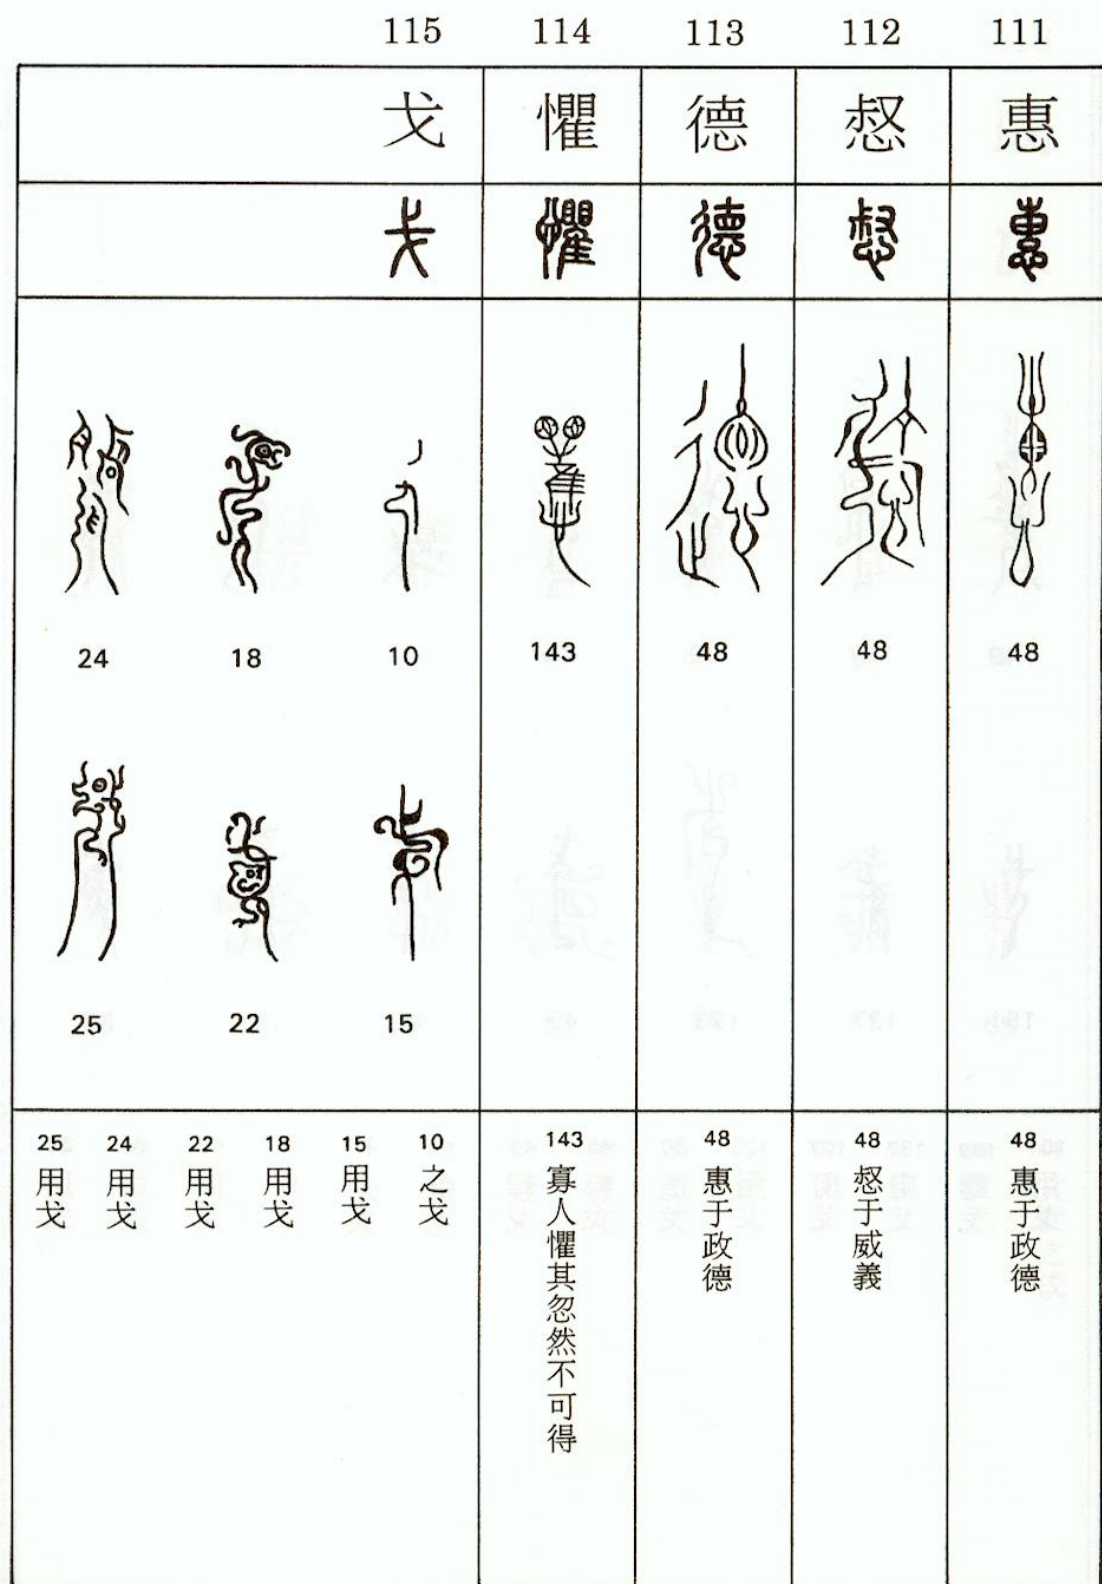 111
惠
48
48 惠于政德
112
惄
48
48 惄于威義
113
德
48
48 惠于政德
114
懼
143
143 寡人懼其忽然不可得
115
戈
10
18
24
15
22
25
10 之戈
15 用戈
18 用戈
22 用戈
24 用戈
25 用戈